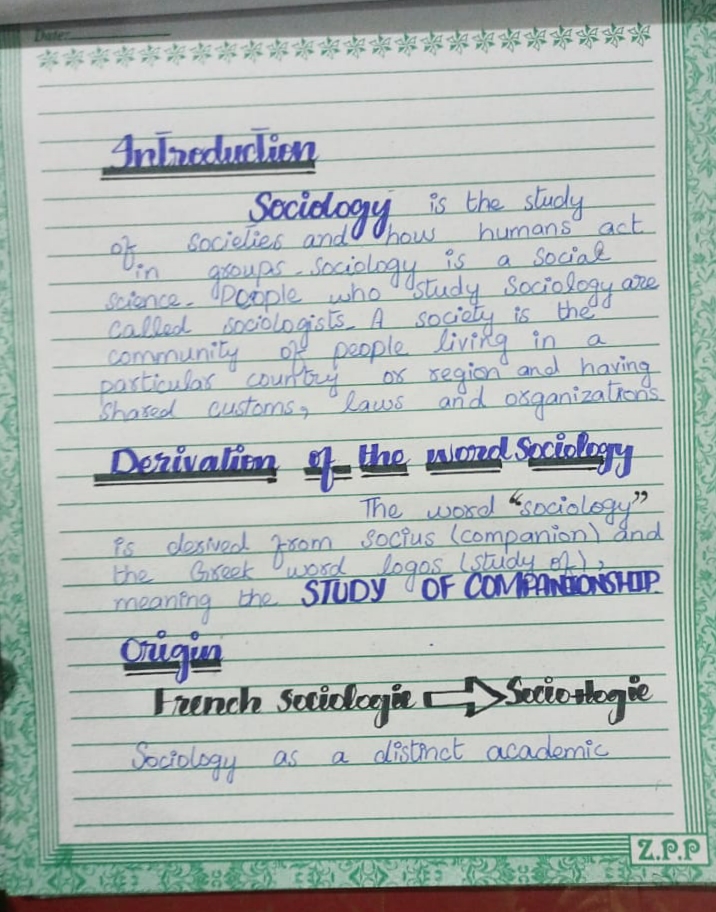 Date:
Introduction
Sociology is the study
of societies and how humans act
in groups. Sociology is a social
science. People who study Sociology are
called sociologists. A society is the
community of people living in a
particular country or region and having
shared customs, laws and organizations
Derivation of the word Sociology
The word “sociology”
is derived from socius (companion) and
the Greek word logos (study of),
meaning the STUDY OF COMPANIONSHIP.
Origin
French Sociologie ⇒ Socio+logie
Sociology as a distinct academic
Z.P.P